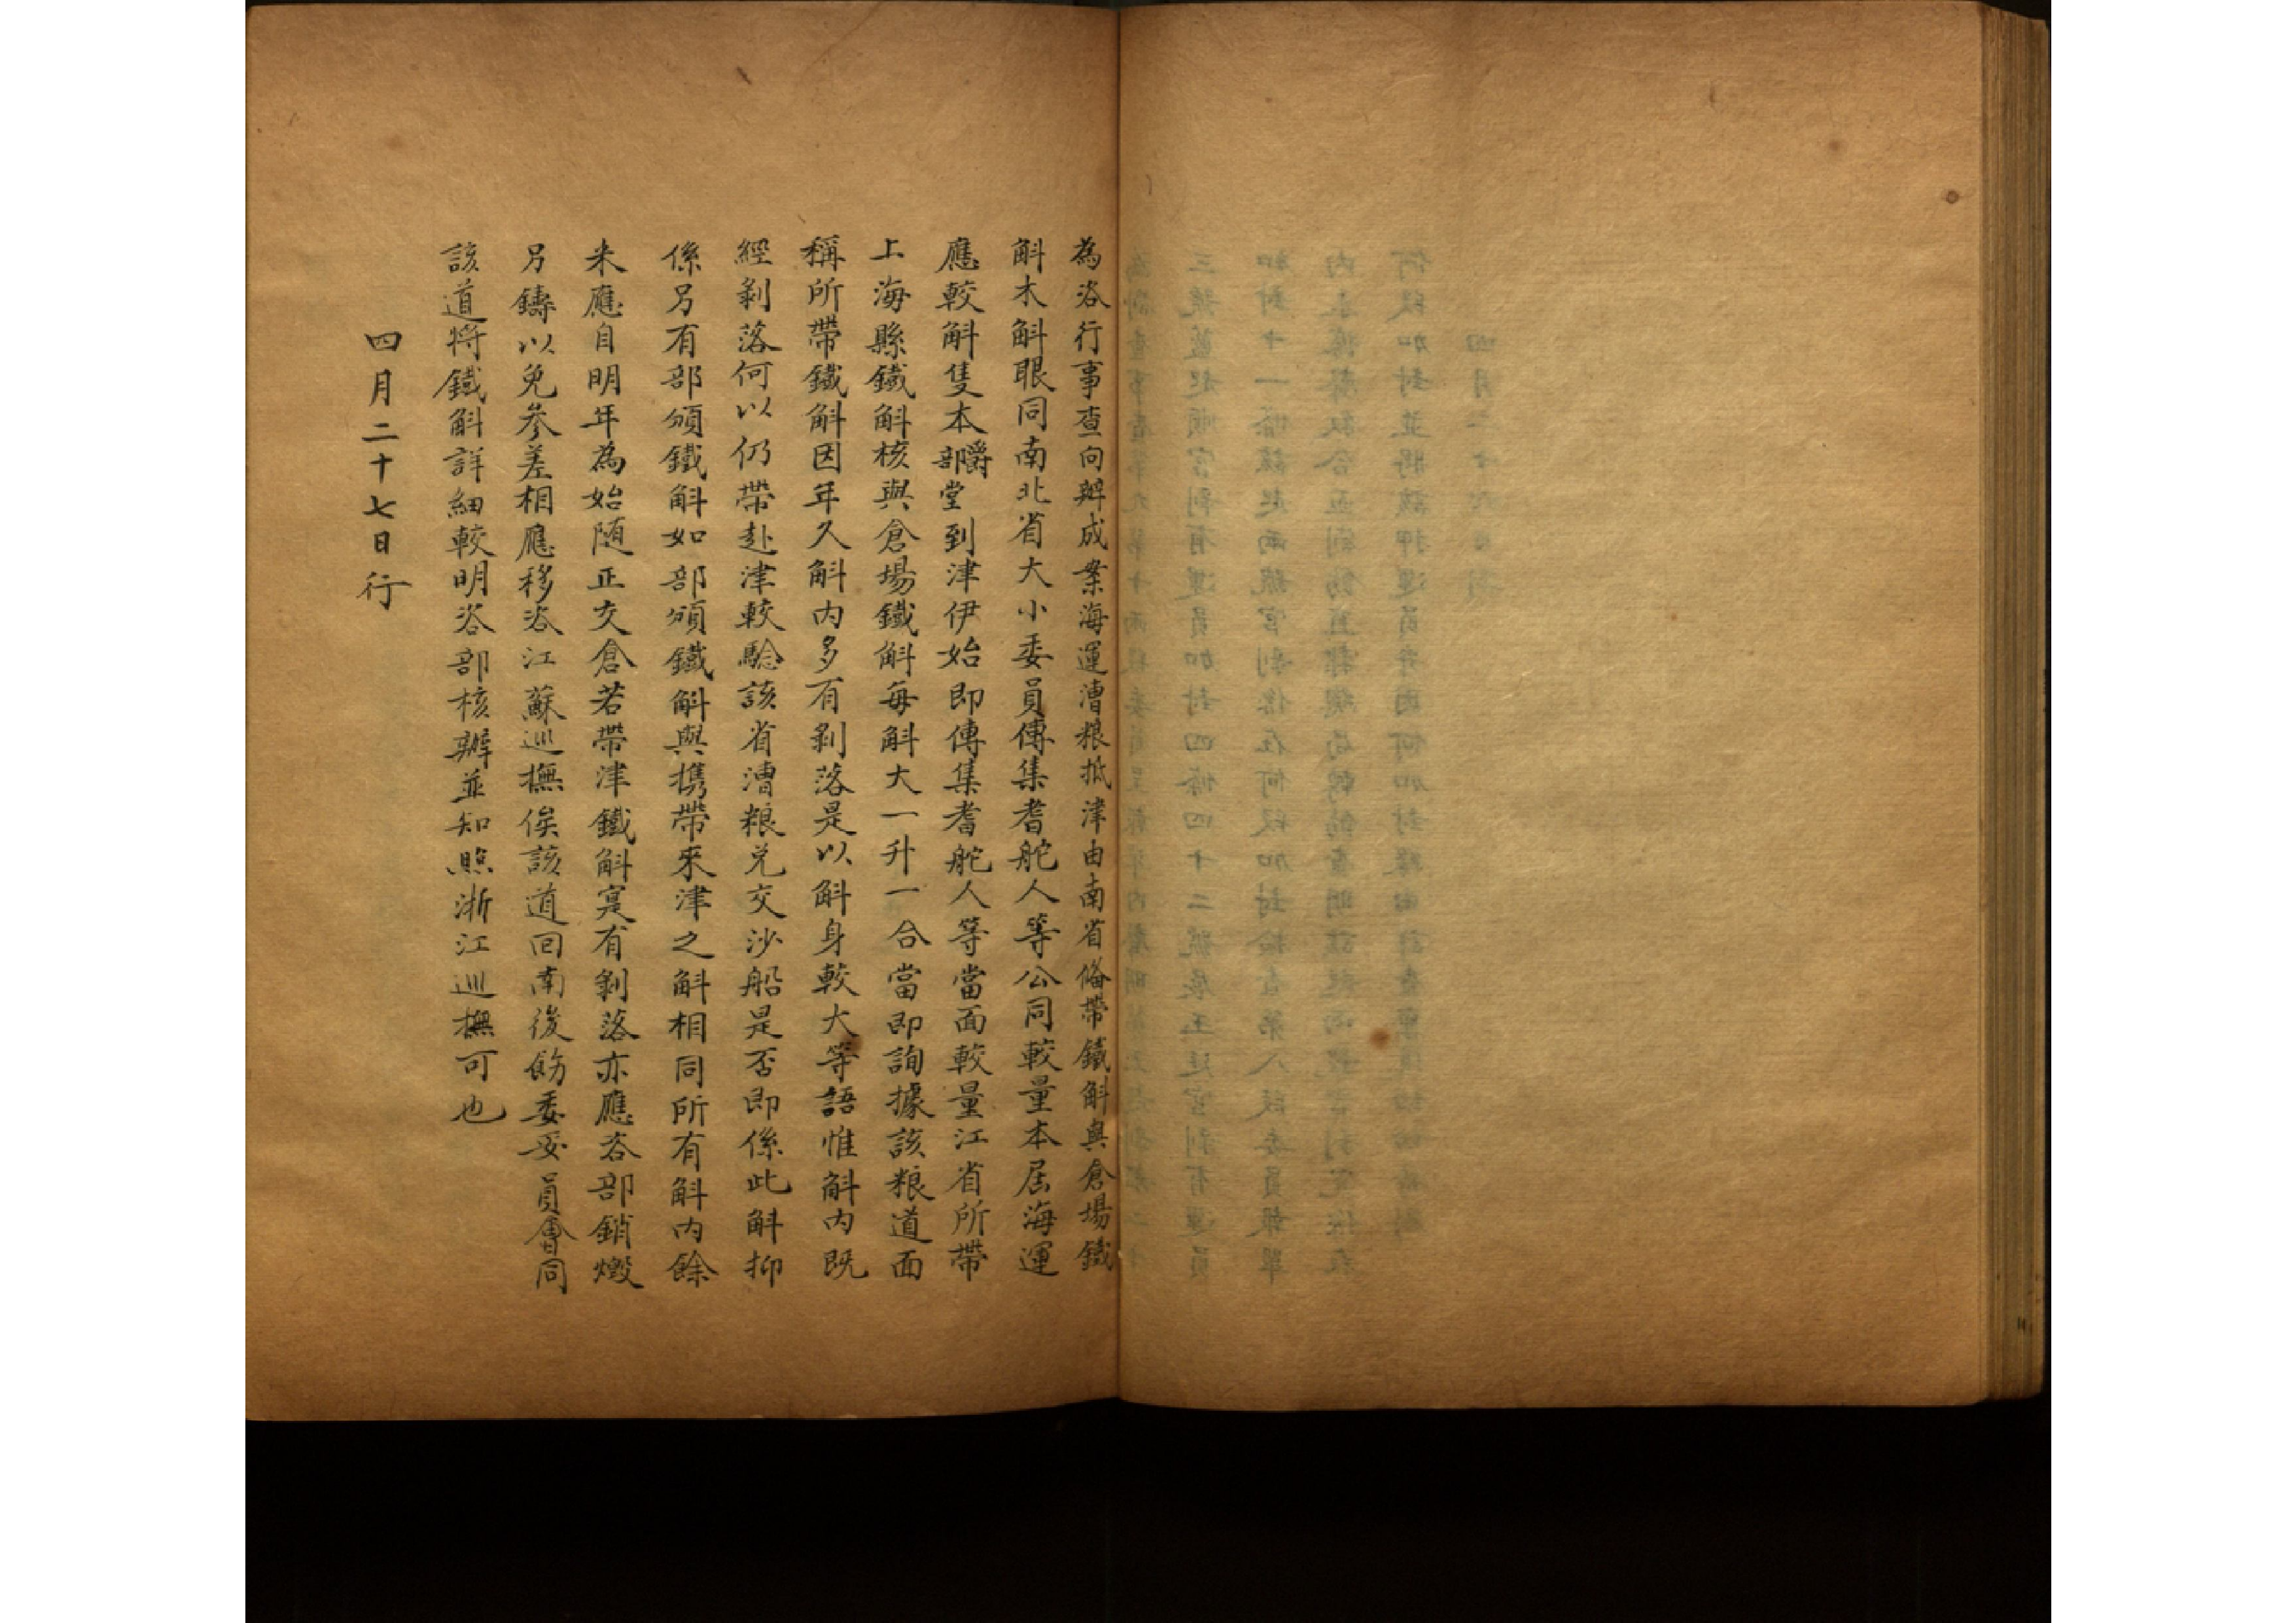 為咨行事查向辦成案海運漕粮抵津由南省俻帶鐵斛與倉場鐵
斛木斛眼同南北省大小委員傳集耆舵人等公同較量本屆海運
應較斛隻本爵部堂到津伊始即傳集耆舵人等當面較量江省所帶
上海縣鐵斛核與倉場鐵斛每斛大一升一合當即詢據該粮道面
稱所帶鐵斛因年久斛内多有剥落是以斛身較大等語惟斛内既
經剥落何以仍帶赴津較驗該省漕粮兑交沙船是否即係此斛抑
係另有部頒鐵斛如部頒鐵斛與携帶來津之斛相同所有斛内餘
米應自明年為始随正交倉若帶津鐵斛寔有剥落亦應咨部銷燬
另鑄以免參差相應移咨江蘇巡撫俟該道回南後飭委妥員會同
該道将鐵斛詳細較明咨部核辦並知照浙江巡撫可也
四月二十七日行